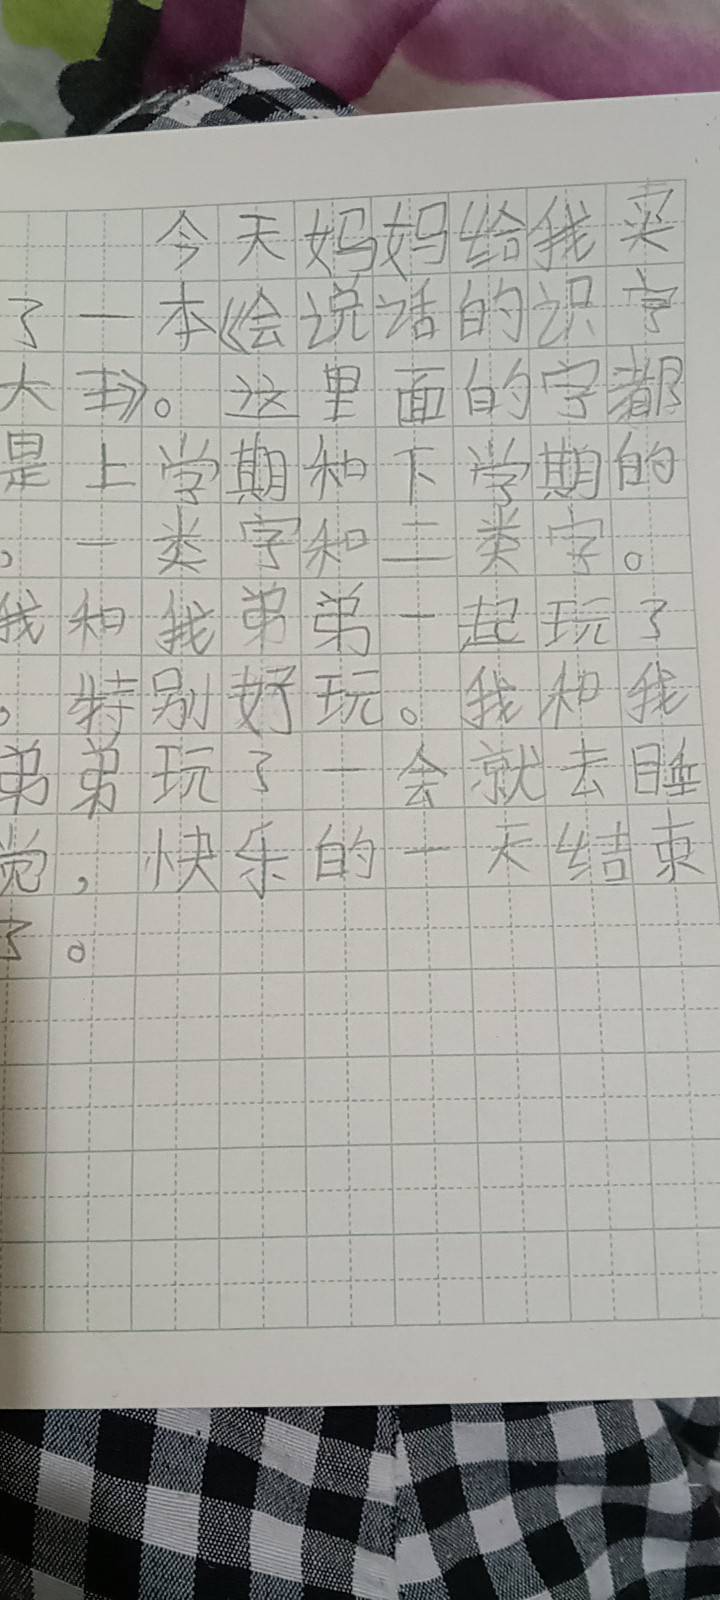 今天妈妈给我买
了一本《会说话的识字
大王》。这里面的字都
是上学期和下学期的
，一类字和二类字。
我和我弟弟一起玩了
。特别好玩。我和我
弟弟玩了一会就去睡
觉，快乐的一天结束
了。